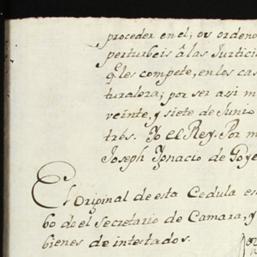 proceder en el; os ordeno
perturbeis à las Justicia
q̃ les compete, en los cas
turaleza; por ser assi m
veinte, y siete de Junio
tres. Yo el Rey. Por m
Joseph Ignacio de Goye
El Original de esta Cedula es
bo de el Secretario de Camara, y
bienes de intestados.